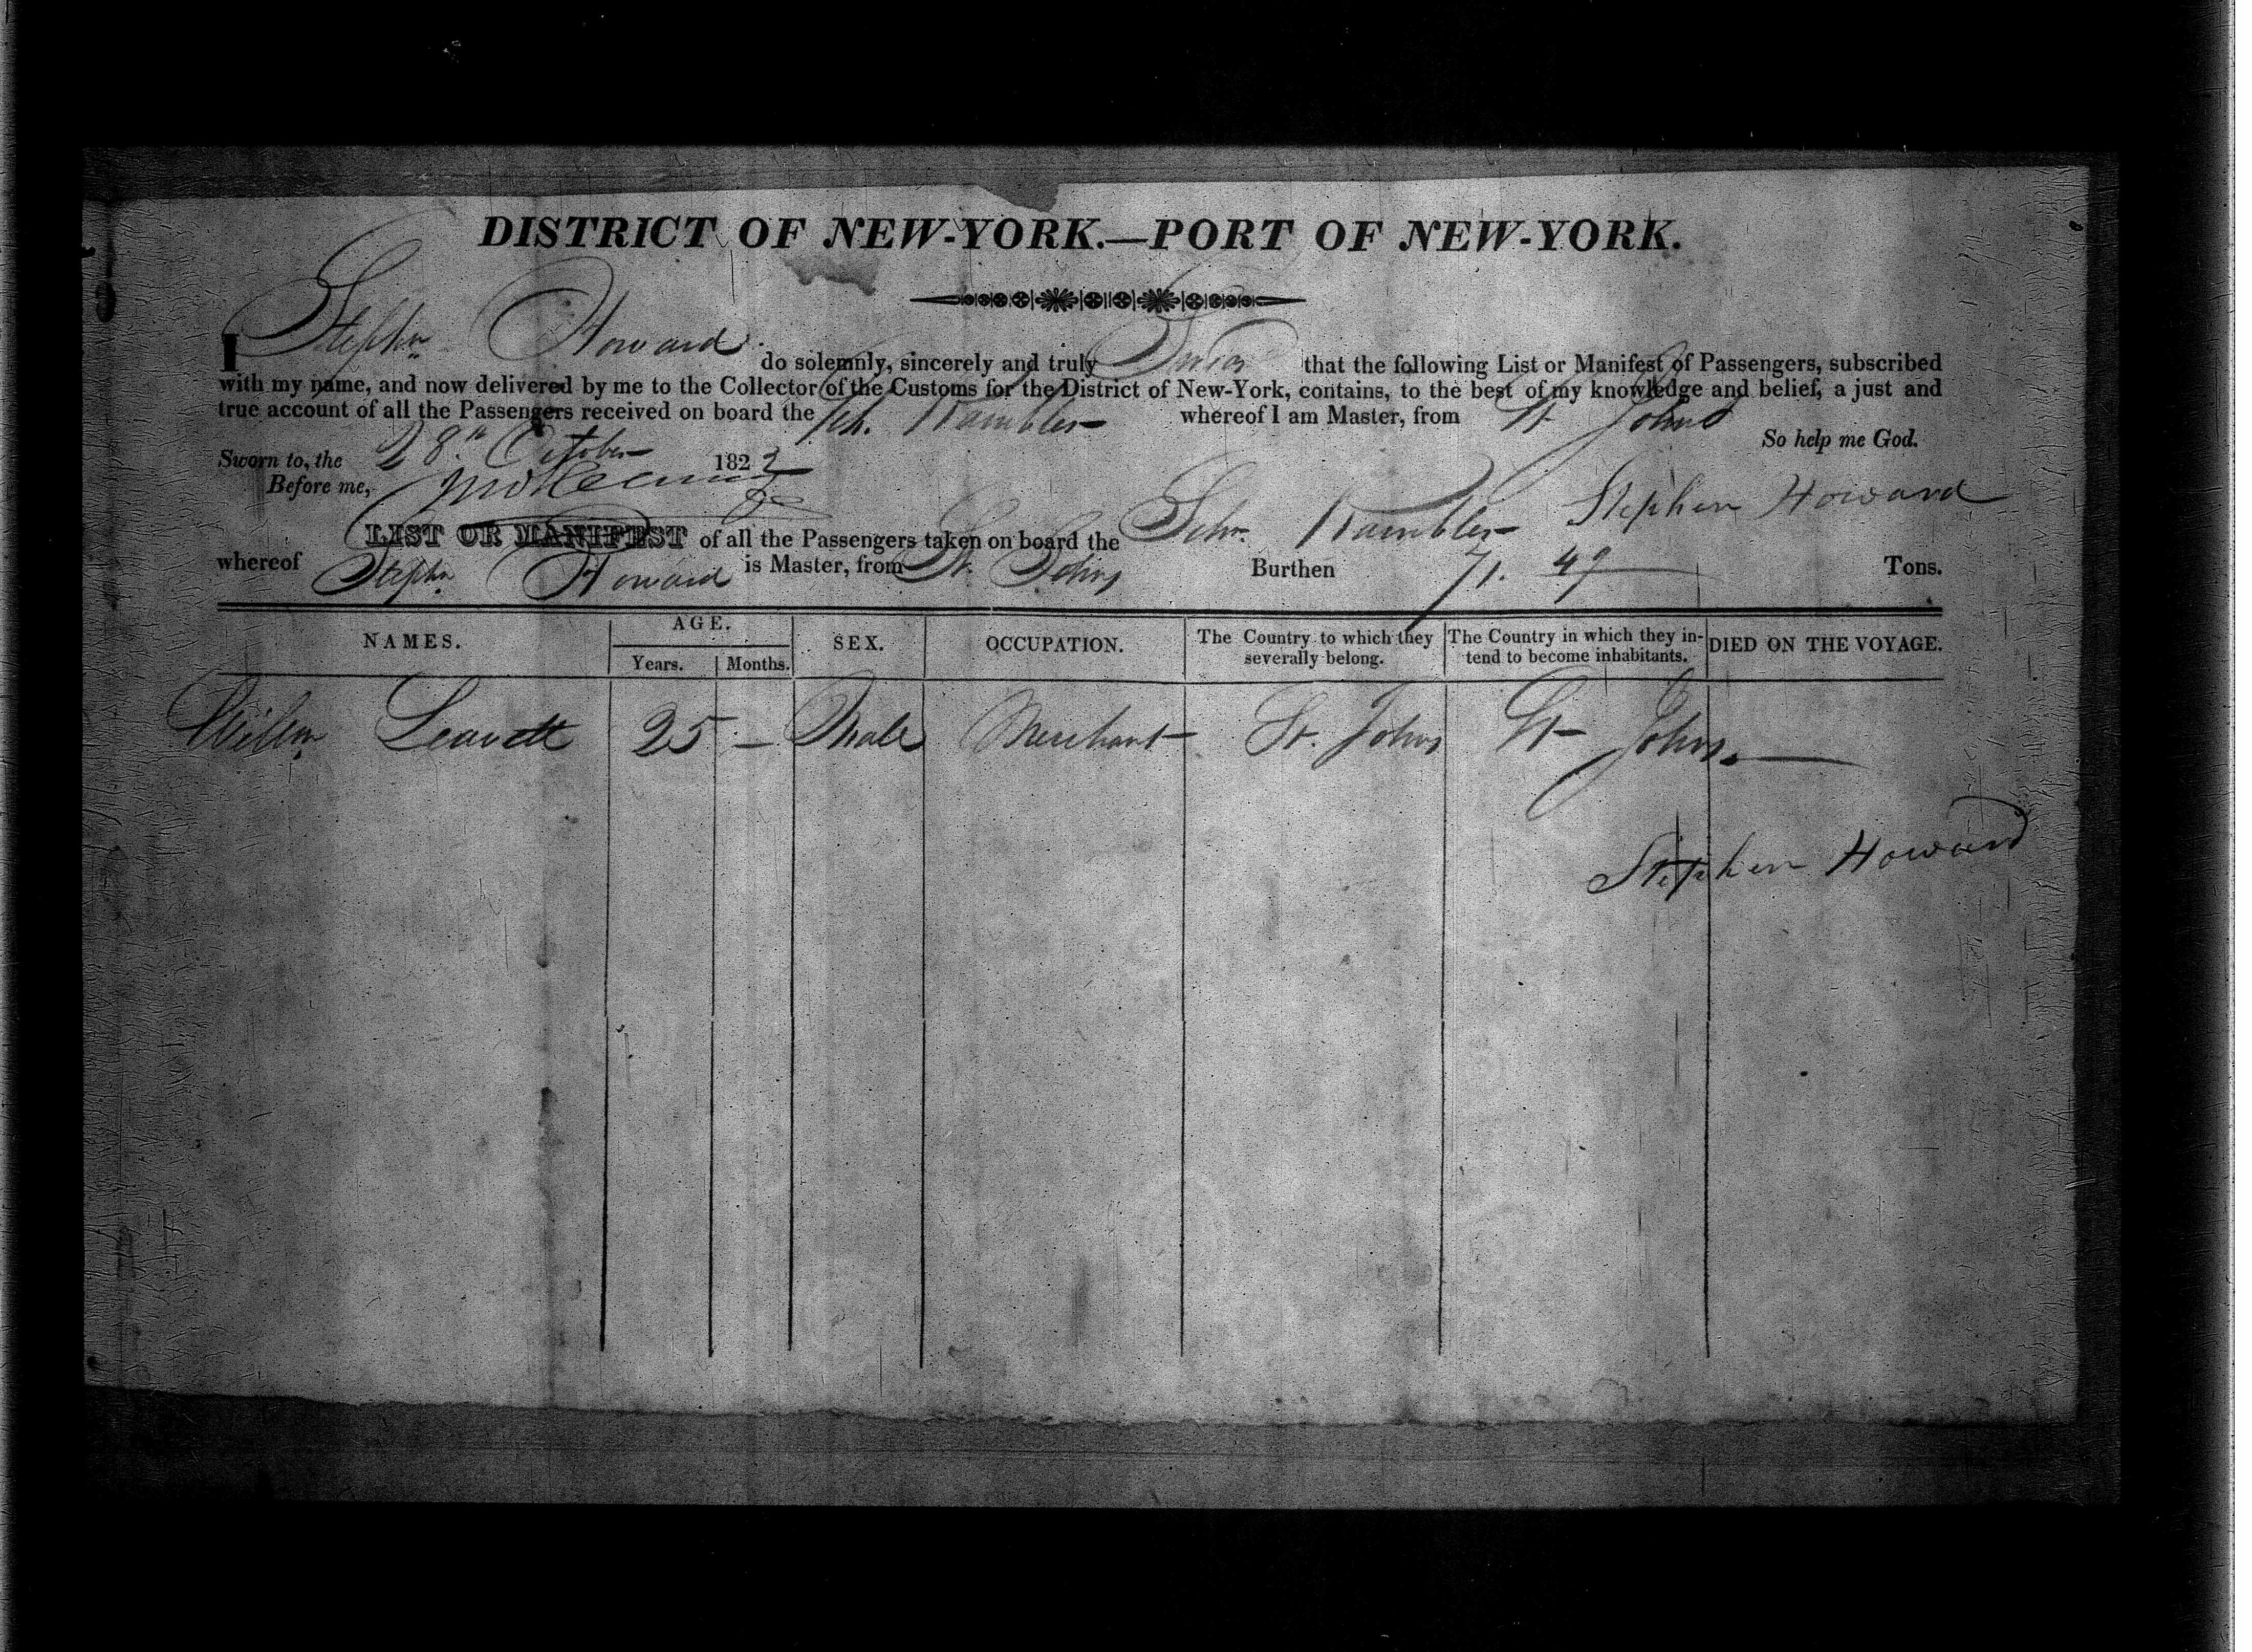 DISTRICT OF NEW-YORK.—PORT OF NEW-YORK.
I Stephn Howard do solemnly, sincerely and truly Swear that the following List or Manifest of Passengers, subscribed
with my name, and now delivered by me to the Collector of the Customs for the District of New-York, contains, to the best of my knowledge and belief, a just and
true account of all the Passengers received on board the Sch. Rambler whereof I am Master, from St Johns
So help me God.
Sworn to, the 28th October 1822
Before me,
Stephen Howard
LIST OR MANIFEST of all the Passengers taken on board the Schr. Rambler
whereof Stephn Howard is Master, from St. Johns Burthen 71. 49 Tons.
NAMES. AGE. SEX. OCCUPATION. The Country to which they severally belong. The Country in which they intend to become inhabitants. DIED ON THE VOYAGE.
Years. Months.
Willm Leavett 25 — Male Merchant St. Johns St Johns.
Stephen Howard